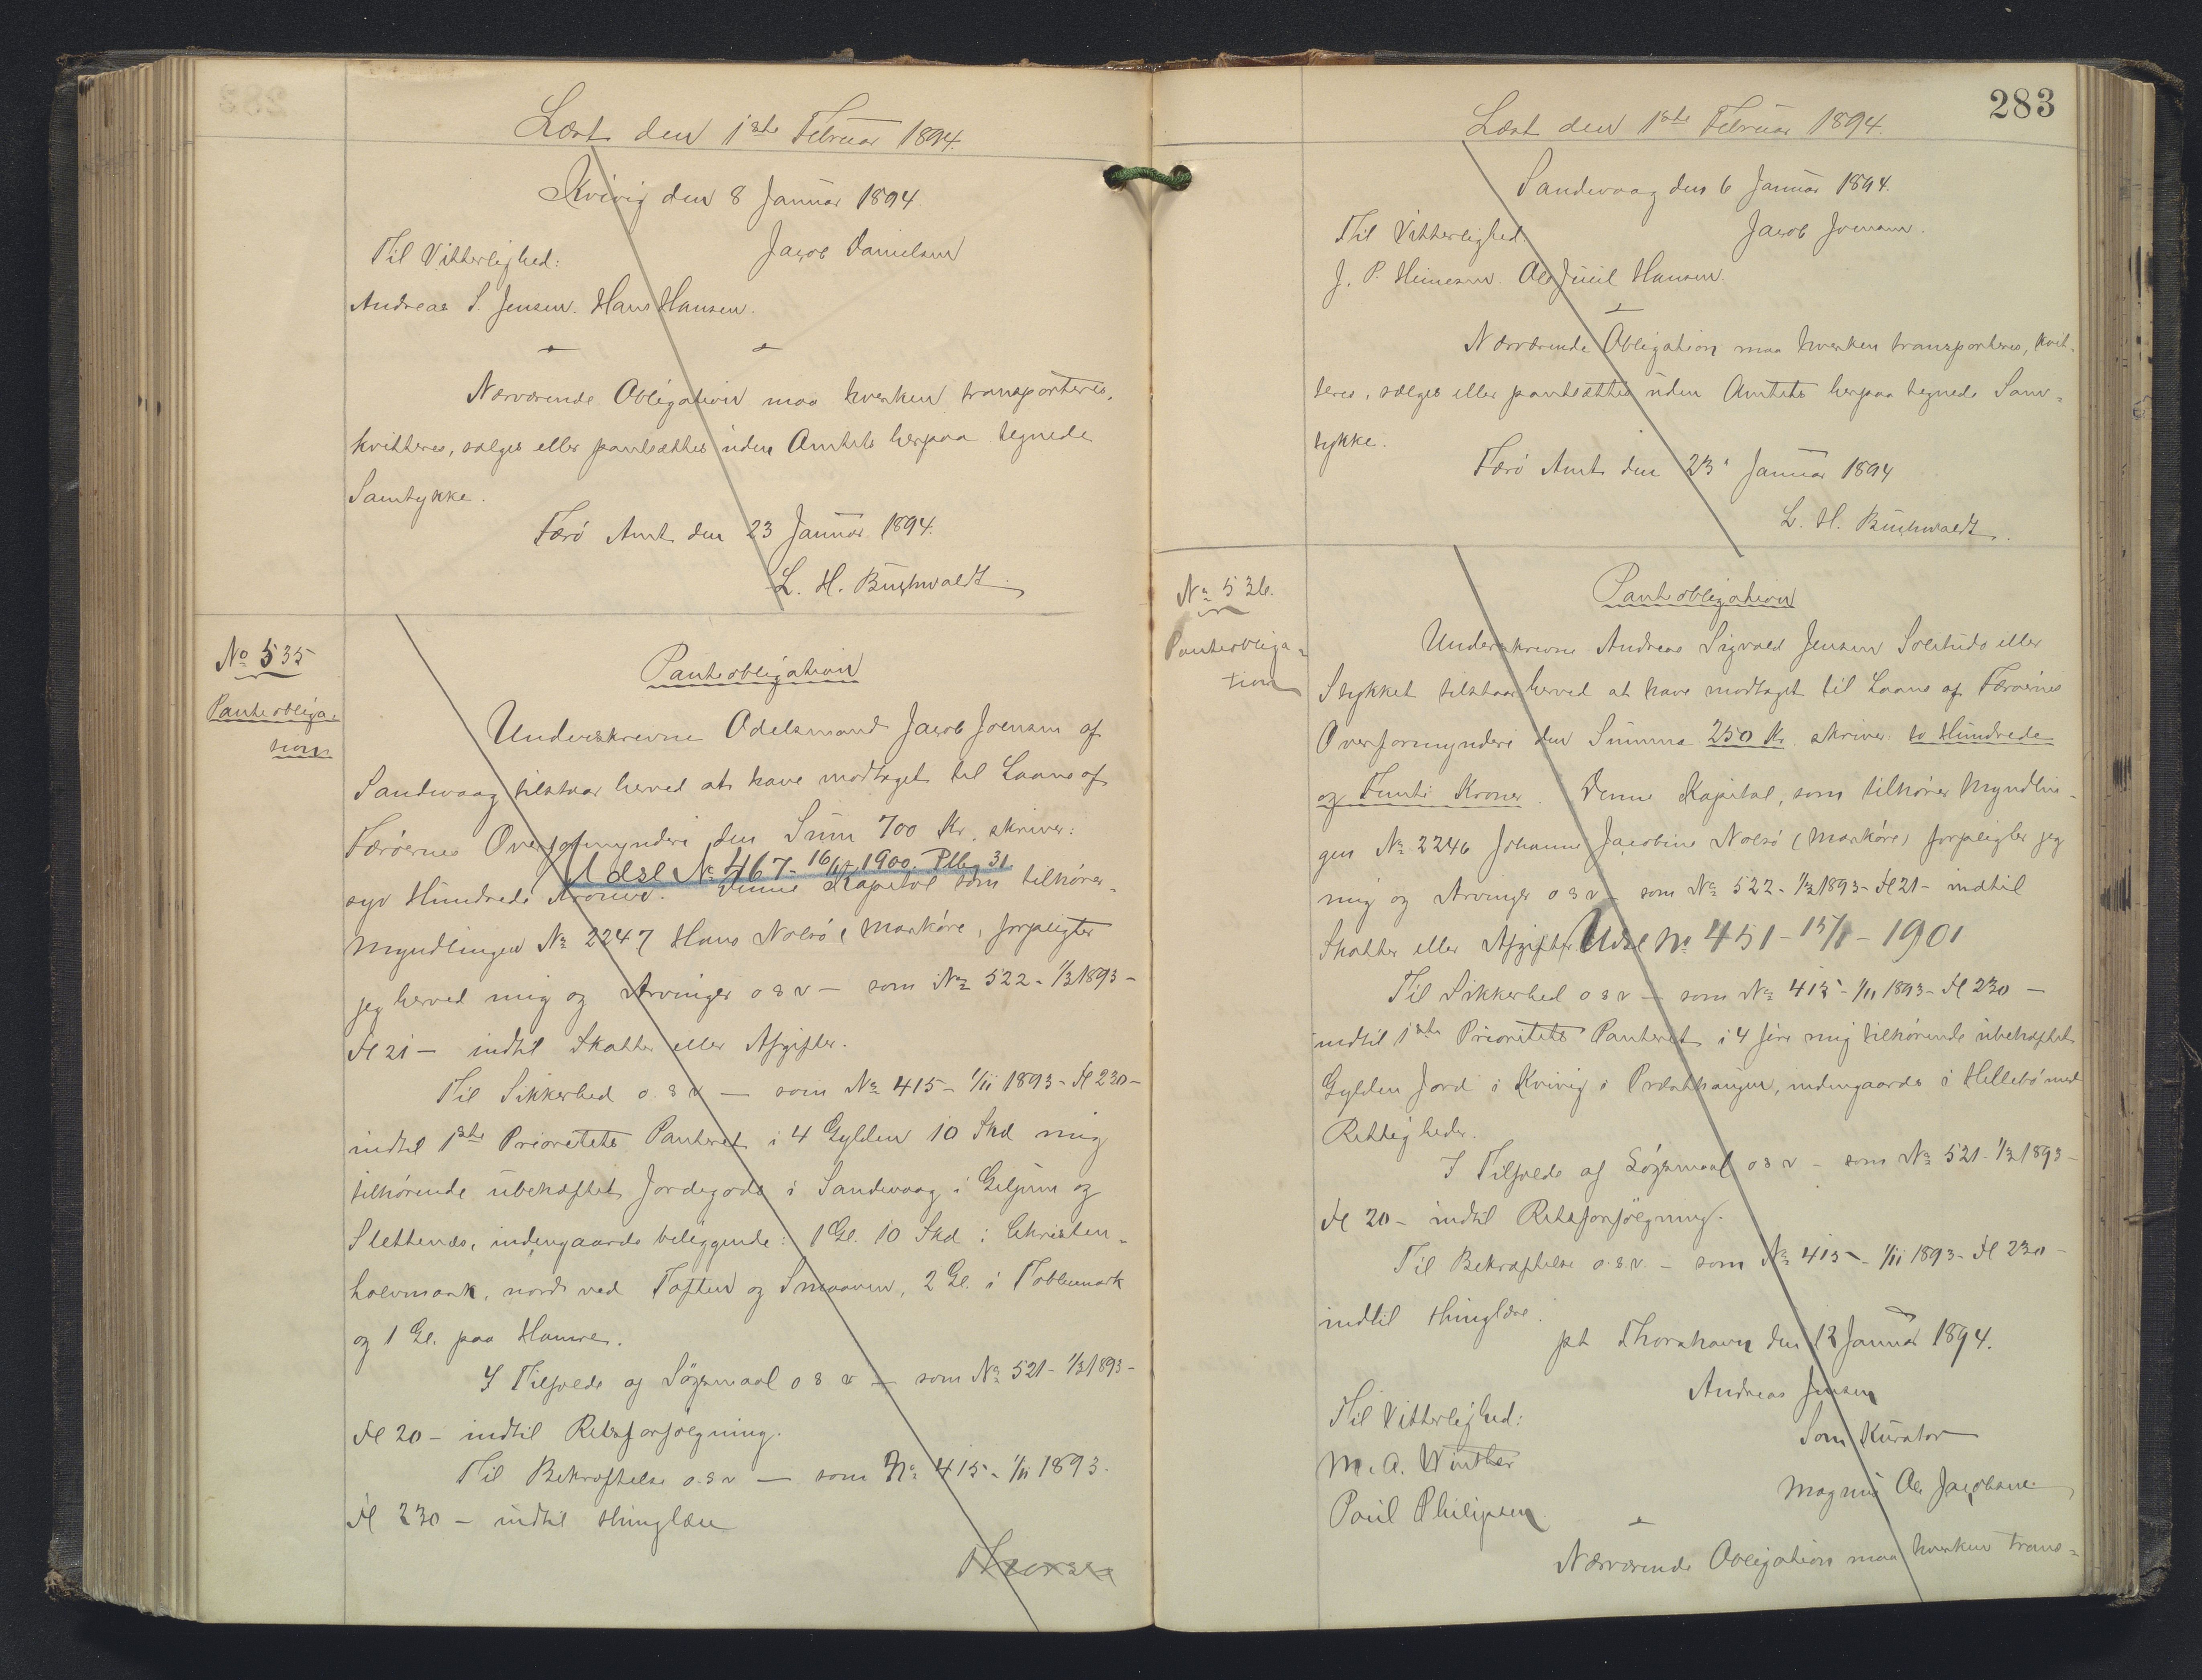 Læst den 1ste Februar 1894.
Kvivig den 8 Januar 1894.
Til Vitterlighed: Jacob Danielsen
Andreas S. Jensen. Hans Hansen.
Nærværende Obligation maa hverken transporteres,
kvitteres, sælges eller pantsættes uden Amtets herpaa tegnede
Samtykke.
Færö Amt den 23 Januar 1894.
L. H. Buchwaldt
No 535
Panteobliga-
tion
Panteobligation
Underskrevne Odelsmand Jacob Joensen af
Sandevaag tilstaar herved at have modtaget til Laans af
Færöernes Overformynderi den Sum 700 Kr. skriver:
Udsl No 467- 1900. Plbg 31
syv Hundrede Kroner. Denne Kapital som tilhører
Myndlingen No 2247 Hans Nolsö (Manköre), forpligter
jeg herved mig og Arvinger o s v - som No 522 - 1/2 1893 -
Fl 21 - indtil Skatter eller Afgifter.
Til Sikkerhed o. s v - som No 415 - 1/11 1893 - Fl 230 -
indtil 1ste Prioritets Panteret i 4 Gylden 10 Skd mig
tilhörende ubehæftet Jordegods i Sandevaag i Giljum og
Slettenæs, indengaards beliggende: 1 Gl. 10 Skd i Christen-
holvmark, nord ved Toften og Smaaven, 2 Gl. i Toblemark
og 1 Gl. paa Hamre.
I Tilfælde af Sögsmaal o s v - som No 521 - 1/2 1893 -
Fl 20 - indtil Retsforfölgning.
Til Bekræftelse o. s v - som No 415 - 1/11 1893.
Fl 230 - indtil thinglæse
283
Læst den 1ste Februar 1894.
Sandevaag den 6 Januar 1894.
Til Vitterlighed. Jacob Joensen.
J. P. Heinesen. Ole Juul Hansen.
Nærværende Obligation maa hverken transporteres, kvit-
teres, sælges eller pantsættes uden Amtets herpaa tegnede Sam-
tykke.
Færö Amt den 23 Januar 1894
L. H. Buchwaldt.
No 536.
Panteobliga-
tion
Panteobligation
Underskrevne Andreas Sigvald Jensen Solitude eller
Stykket tilstaar herved at have modtaget til Laans af Færöernes
Overformynderi den Summa 250 Kr. skriver to Hundrede
og Femti Kroner. Denne Kapital, som tilhører Myndlin-
gen No 2246 Johanne Jacobine Nolsö (Manköre) forpligter jeg
mig og Arvinger o s v - som No 522 - 1/2 1893 - Fl 21 - indtil
Skatter eller Afgifter Udsl No 451 - 15/8 - 1901
Til Sikkerhed o s v - som No 415 - 1/11 1893 - Fl 230 -
indtil 1ste Prioritets Panteret i 4 fire mig tilhörende ubehæftet
Gylden Jord i Kvivig i indengaards i Hellebö med
Rettigheder.
I Tilfælde af Sögsmaal o s v - som No 521 - 1/2 1893 -
Fl 20 - indtil Retsforfölgning.
Til Bekræftelse o. s. v. - som No 415 - 1/11 1893 - Fl 230 -
indtil thinglæse.
pt Thorshavn den 12 Januar 1894.
Andreas Jensen
Til Vitterlighed:
Som Kurator
M. A. Winther
Magnus Ole Jacobsen
Poul Philipsen
Nærværende Obligation maa hverken trans-